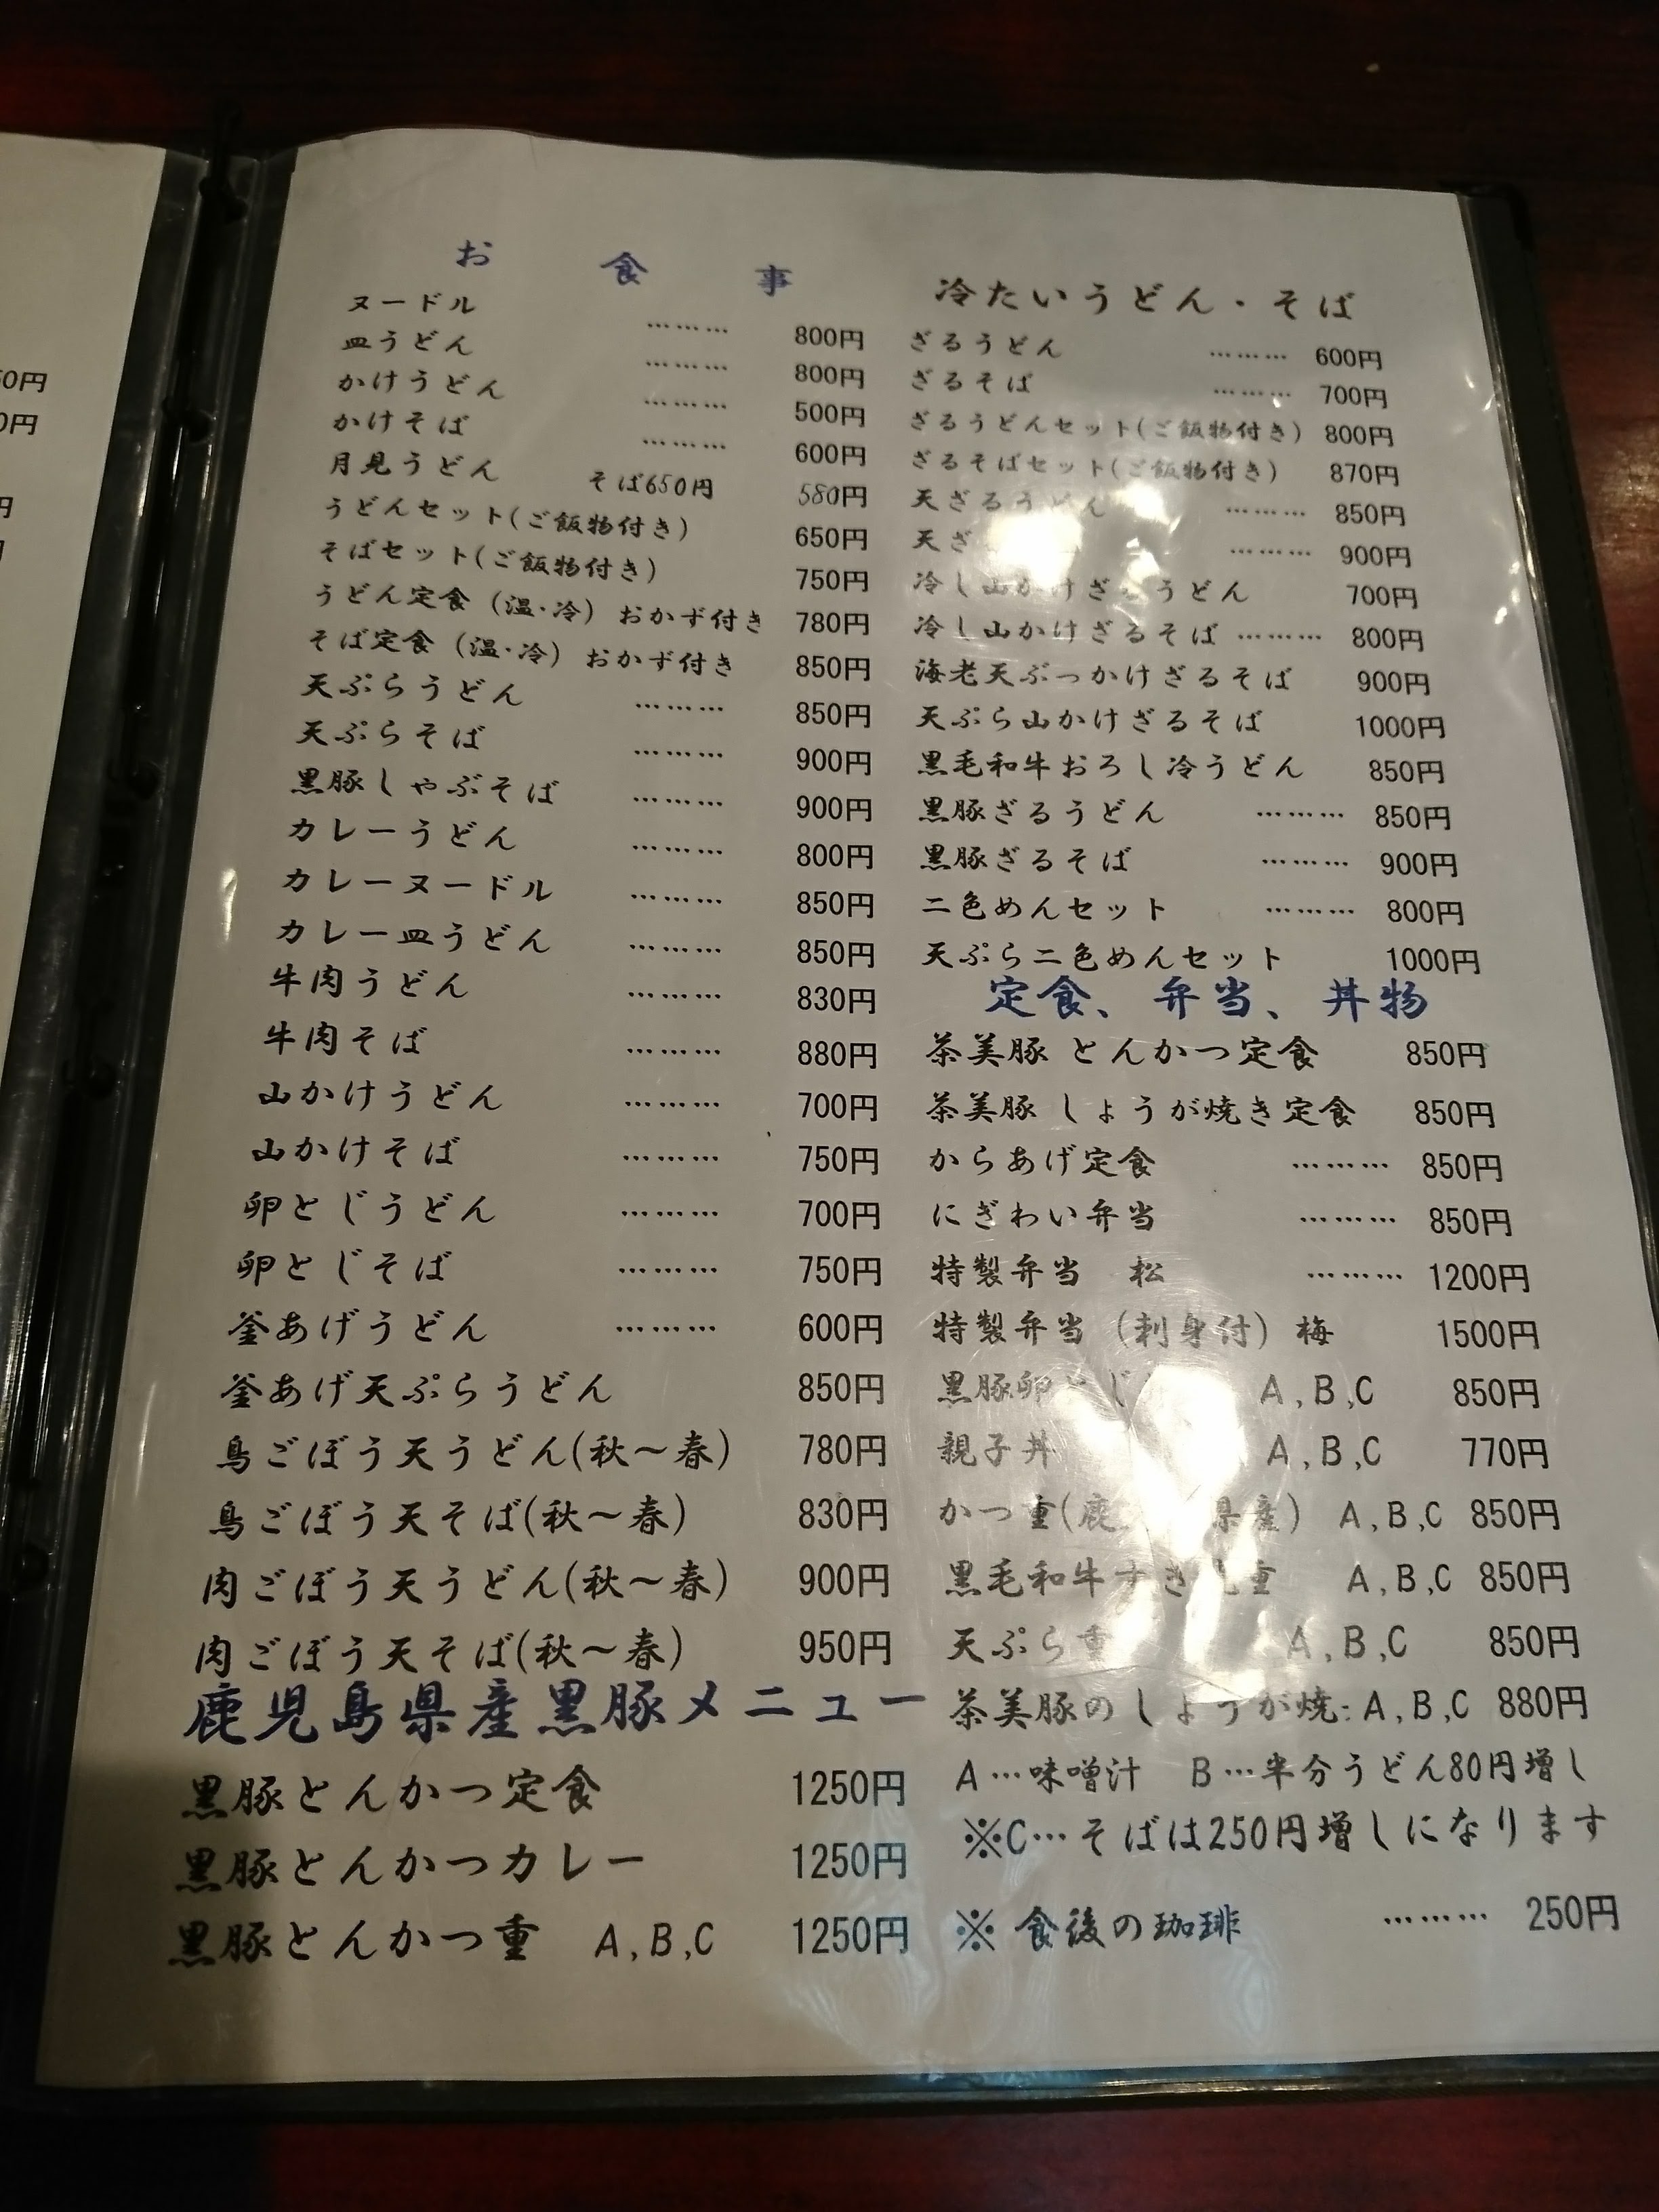 お食事
ヌードル ……… 800円
皿うどん ……… 800円
かけうどん ……… 500円
かけそば ……… 600円
月見うどん そば650円 580円
うどんセット(ご飯物付き) 650円
そばセット(ご飯物付き) 750円
うどん定食（温・冷）おかず付き 780円
そば定食（温・冷）おかず付き 850円
天ぷらうどん ……… 850円
天ぷらそば ……… 900円
黒豚しゃぶそば ……… 900円
カレーうどん ……… 800円
カレーヌードル ……… 850円
カレー皿うどん ……… 850円
牛肉うどん ……… 830円
牛肉そば ……… 880円
山かけうどん ……… 700円
山かけそば ……… 750円
卵とじうどん ……… 700円
卵とじそば ……… 750円
釜あげうどん ……… 600円
釜あげ天ぷらうどん 850円
鳥ごぼう天うどん(秋～春) 780円
鳥ごぼう天そば(秋～春) 830円
肉ごぼう天うどん(秋～春) 900円
肉ごぼう天そば(秋～春) 950円
鹿児島県産黒豚メニュー
黒豚とんかつ定食 1250円
黒豚とんかつカレー 1250円
黒豚とんかつ重 A,B,C 1250円
冷たいうどん・そば
ざるうどん ……… 600円
ざるそば ……… 700円
ざるうどんセット(ご飯物付き) 800円
ざるそばセット(ご飯物付き) 870円
天ざるうどん ……… 850円
天ざ ……… 900円
冷し山かけざるうどん 700円
冷し山かけざるそば ……… 800円
海老天ぶっかけざるそば 900円
天ぷら山かけざるそば 1000円
黒毛和牛おろし冷うどん 850円
黒豚ざるうどん ……… 850円
黒豚ざるそば ……… 900円
二色めんセット ……… 800円
天ぷら二色めんセット 1000円
定食、弁当、丼物
茶美豚 とんかつ定食 850円
茶美豚 しょうが焼き定食 850円
からあげ定食 ……… 850円
にぎわい弁当 ……… 850円
特製弁当 松 ……… 1200円
特製弁当（刺身付）梅 1500円
黒豚卵とじ A,B,C 850円
親子丼 A,B,C 770円
かつ重(鹿 県産) A,B,C 850円
黒毛和牛すき 重 A,B,C 850円
天ぷら重 A,B,C 850円
茶美豚のしょうが焼: A,B,C 880円
A…味噌汁 B…半分うどん80円増し
※C…そばは250円増しになります
※ 食後の珈琲 ……… 250円